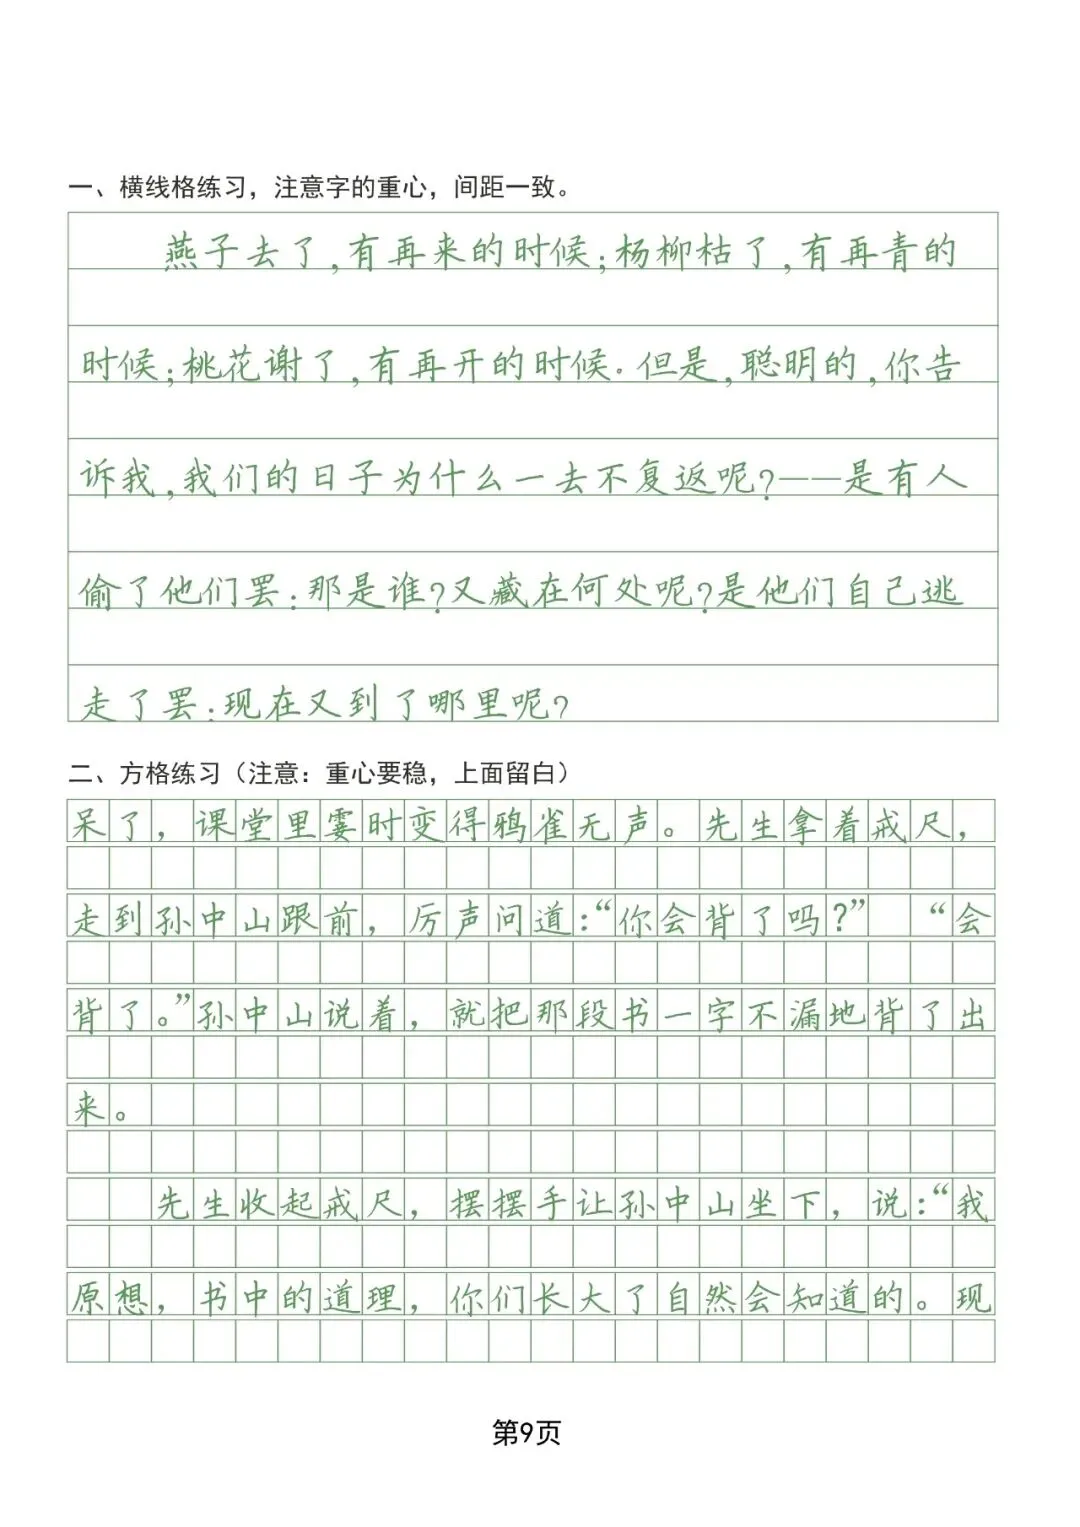 一、横线格练习，注意字的重心，间距一致。
燕子去了,有再来的时候;杨柳枯了,有再青的
时候;桃花谢了,有再开的时候.但是,聪明的,你告
诉我,我们的日子为什么一去不复返呢?——是有人
偷了他们罢:那是谁?又藏在何处呢?是他们自己逃
走了罢:现在又到了哪里呢?
二、方格练习（注意：重心要稳，上面留白）
呆了，课堂里霎时变得鸦雀无声。先生拿着戒尺，
走到孙中山跟前，厉声问道：“你会背了吗？” “会
背了。”孙中山说着，就把那段书一字不漏地背了出
来。
先生收起戒尺，摆摆手让孙中山坐下，说：“我
原想，书中的道理，你们长大了自然会知道的。现
第9页